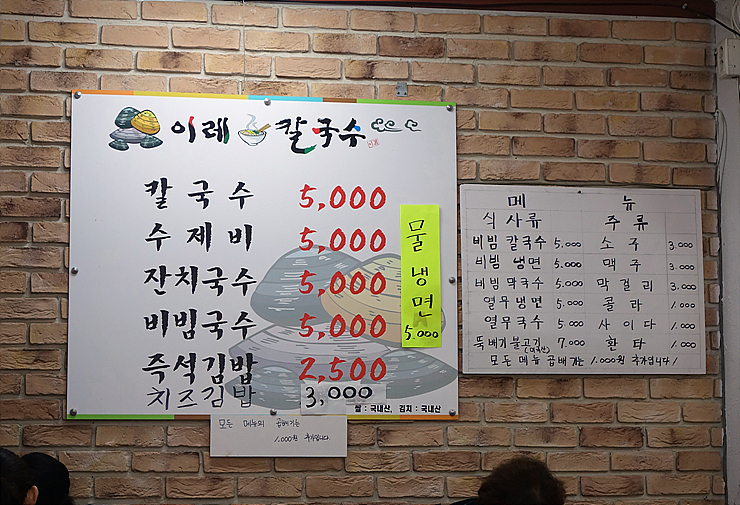 이레 칼국수
칼국수 5,000
수제비 5,000
잔치국수 5,000
비빔국수 5,000
즉석김밥 2,500
치즈김밥 3,000
쌀 : 국내산, 김치 : 국내산
물냉면 5.000
모든 메뉴의 곱빼기는
1.000원 추가입니다.
메뉴
식사류 주류
비빔 칼국수 5.000 소주 3.000
비빔 냉면 5.000 맥주 3.000
비빔 막국수 5.000 막걸리 3.000
열무냉면 5.000 콜라 1.000
열무국수 5.000 사이다 1.000
뚝배기불고기 7.000 환타 1.000
모든 메뉴 곱빼기는 1.000원 추가입니다!